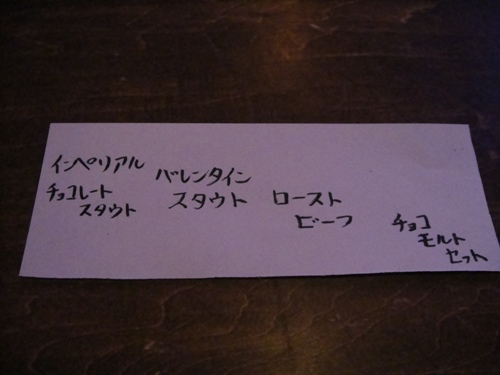 インペリアル
チョコレート
スタウト
バレンタイン
スタウト
ロースト
ビーフ
チョコ
モルト
セット